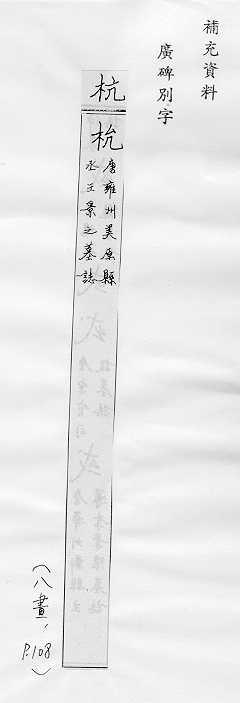 補充資料
廣碑別字
杭
杭
唐雍州美原縣
丞王景之墓誌
(八畫, P.108)